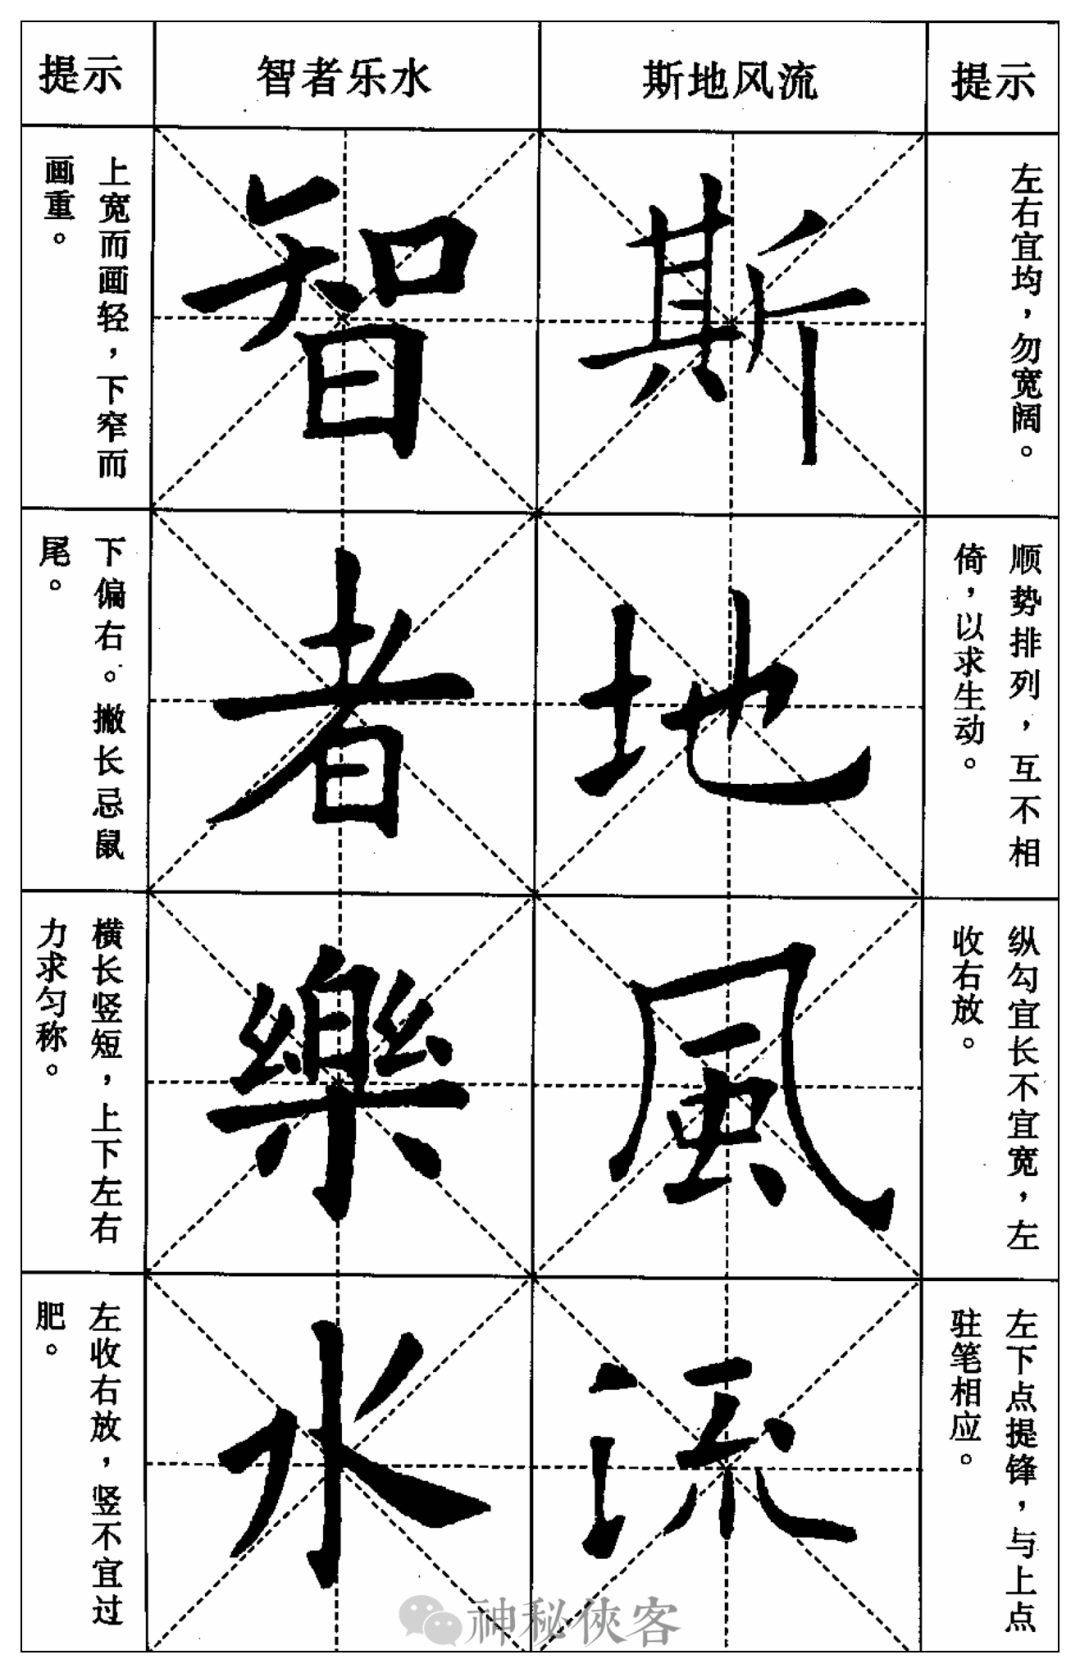 提示
智者乐水
斯地风流
提示
左右宜均，勿宽阔。
斯
智
上宽而画轻，下窄而
画重。
顺势排列，互不相
倚，以求生动。
地
者
下偏右。撇长忌鼠
尾。
纵勾宜长不宜宽，左
收右放。
風
樂
横长竖短，上下左右
力求匀称。
左下点提锋，与上点
驻笔相应。
流
水
左收右放，竖不宜过
肥。
神秘侠客